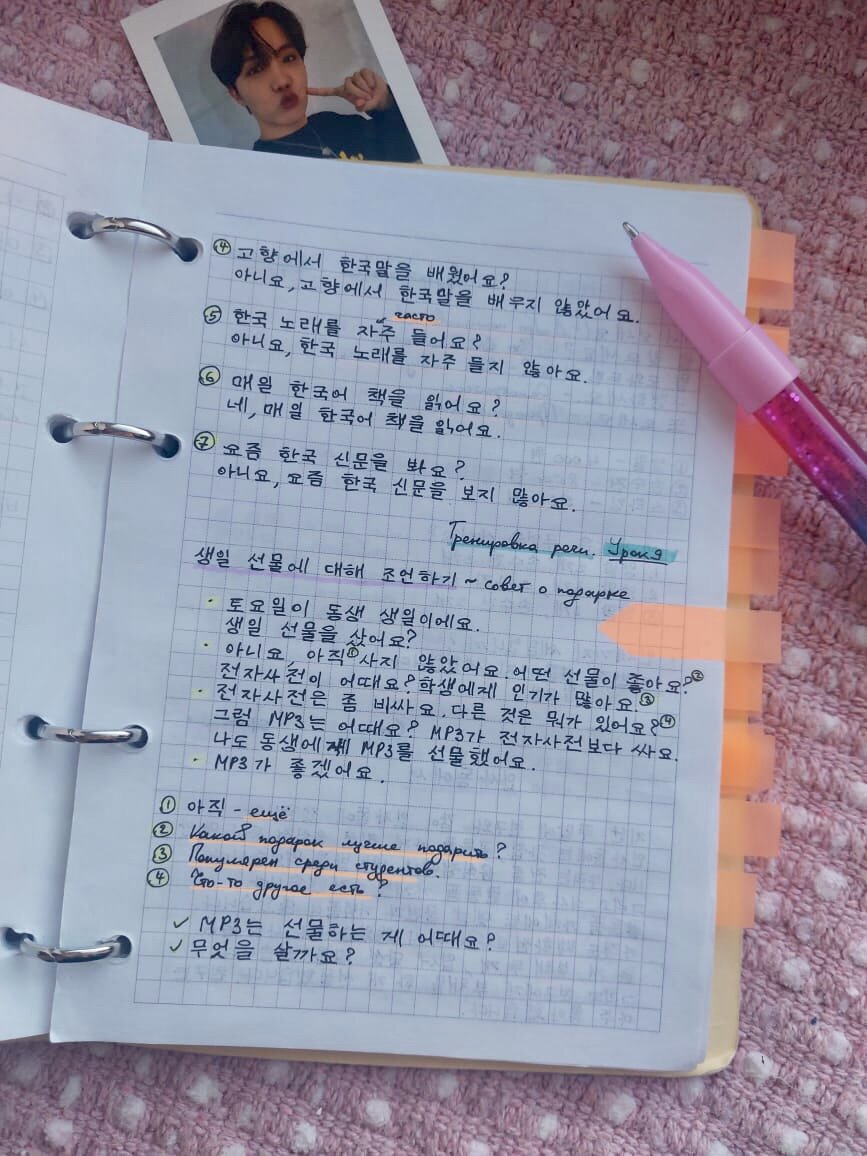 ④ 고향에서 한국말을 배웠어요?
아니요, 고향에서 한국말을 배우지 않았어요.
часто
⑤ 한국 노래를 자주 들어요?
아니요, 한국 노래를 자주 들지 않아요.
⑥ 매일 한국어 책을 읽어요?
네, 매일 한국어 책을 읽어요.
⑦ 요즘 한국 신문을 봐요?
아니요, 요즘 한국 신문을 보지 많아요.
Тренировка речи. Урок 9
생일 선물에 대해 조언하기 ~ совет о подарке
· 토요일이 동생 생일이에요.
생일 선물을 샀어요?
· 아니요, 아직① 사지 않았어요. 어떤 선물이 좋아요?②
전자사전이 어때요? 학생에게 인기가 많아요.③
· 전자사전은 좀 비싸요. 다른 것은 뭐가 있어요?④
그럼 MP3는 어때요? MP3가 전자사전보다 싸요.
나도 동생에게 MP3를 선물했어요.
· MP3가 좋겠어요.
① 아직 - ещё
② Какой подарок лучше подарить?
③ Популярен среди студентов.
④ Что-то другое есть?
✓ MP3는 선물하는 게 어때요?
✓ 무엇을 살까요?